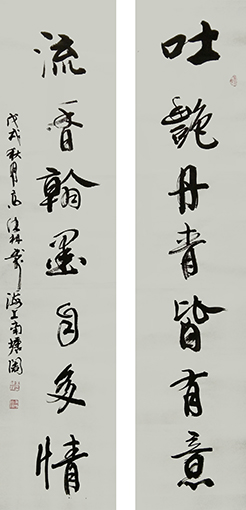 吐艳丹青皆有意
流香翰墨自多情
戊戌秋月
海上南塘阁